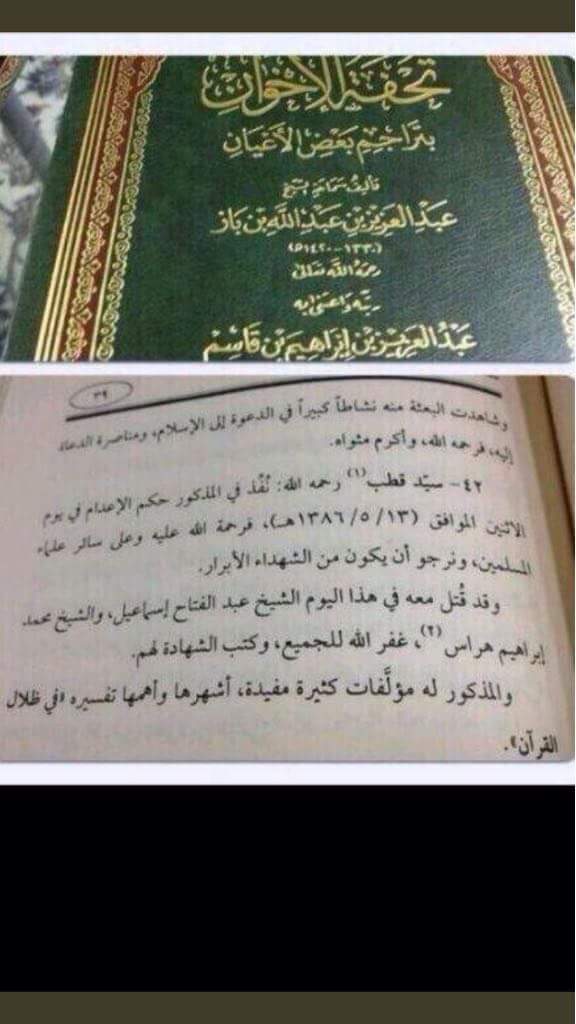 تحفة الإخوان
بتراجم بعض الأعيان
تأليف سماحة الشيخ
عبد العزيز بن عبد الله بن باز
(١٣٣٠ - ١٤٢٠هـ)
رحمه الله تعالى
رتبه واعتنى به
عبد العزيز بن إبراهيم بن قاسم
٣٩
وشاهدت البعثة منه نشاطاً كبيراً في الدعوة إلى الإسلام، ومناصرة الدعاة
إليه، فرحمه الله، وأكرم مثواه.
٤٢- سيّد قطب(١) رحمه الله: نُفِّذ في المذكور حكم الإعدام في يوم
الاثنين الموافق (١٣/ ٥/ ١٣٨٦هـ)، فرحمة الله عليه وعلى سائر علماء
المسلمين، ونرجو أن يكون من الشهداء الأبرار.
وقد قُتل معه في هذا اليوم الشيخ عبد الفتاح إسماعيل، والشيخ محمد
إبراهيم هراس(٢)، غفر الله للجميع، وكتب الشهادة لهم.
والمذكور له مؤلَّفات كثيرة مفيدة، أشهرها وأهمها تفسيره «في ظلال
القرآن».